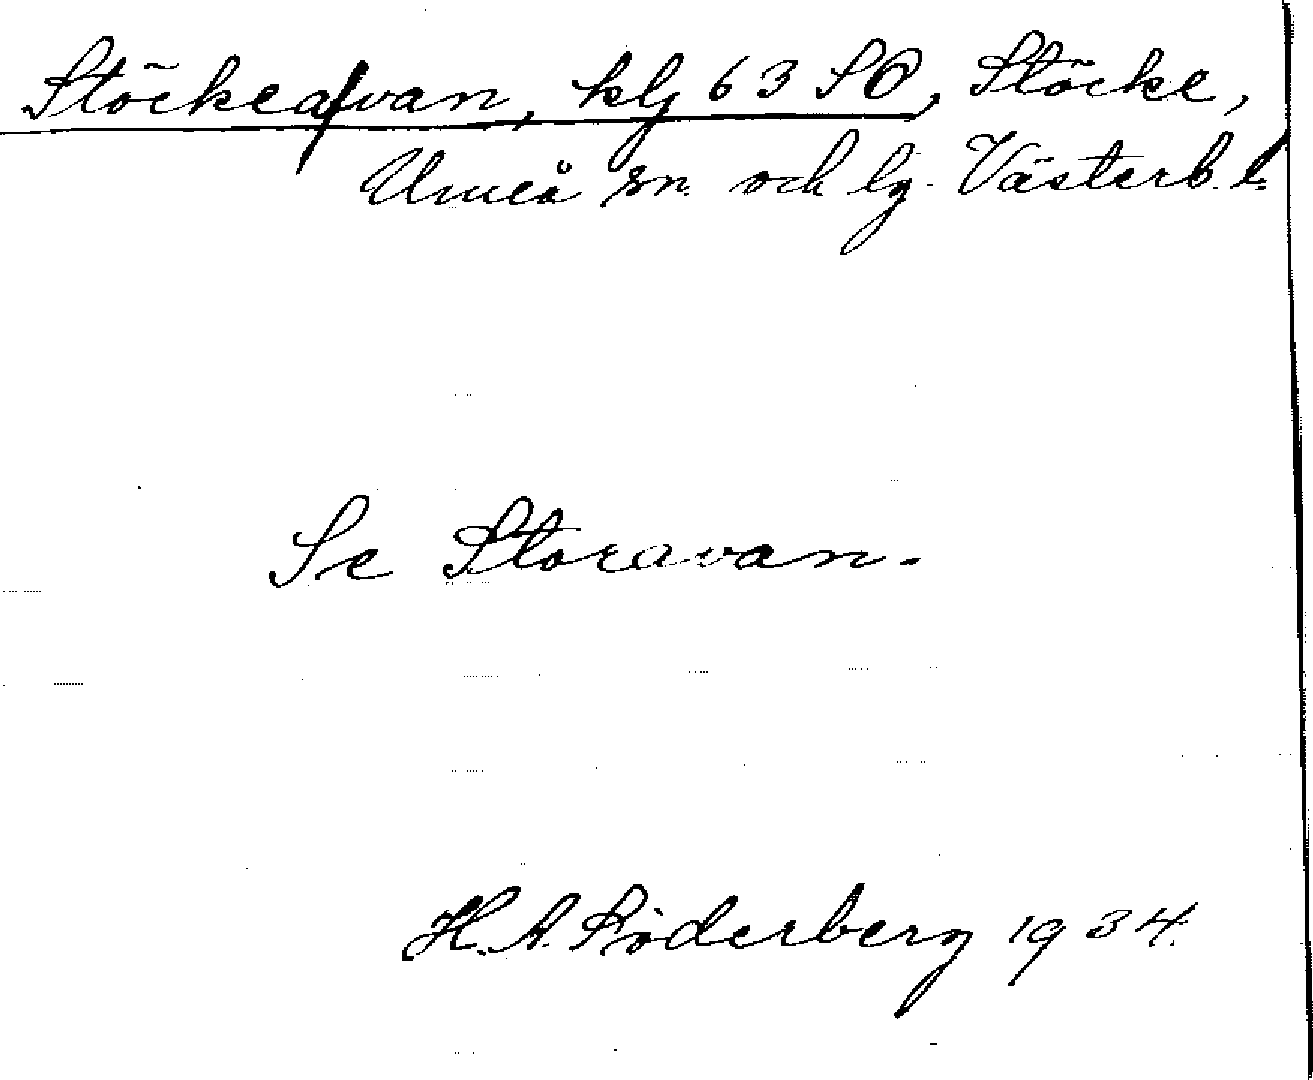 Stöckeafvan, klj 63 SO, Stöcke,
Umeå sn. och lg. Västerb. l.
Se Storavan.
H. A. Söderberg 1934.